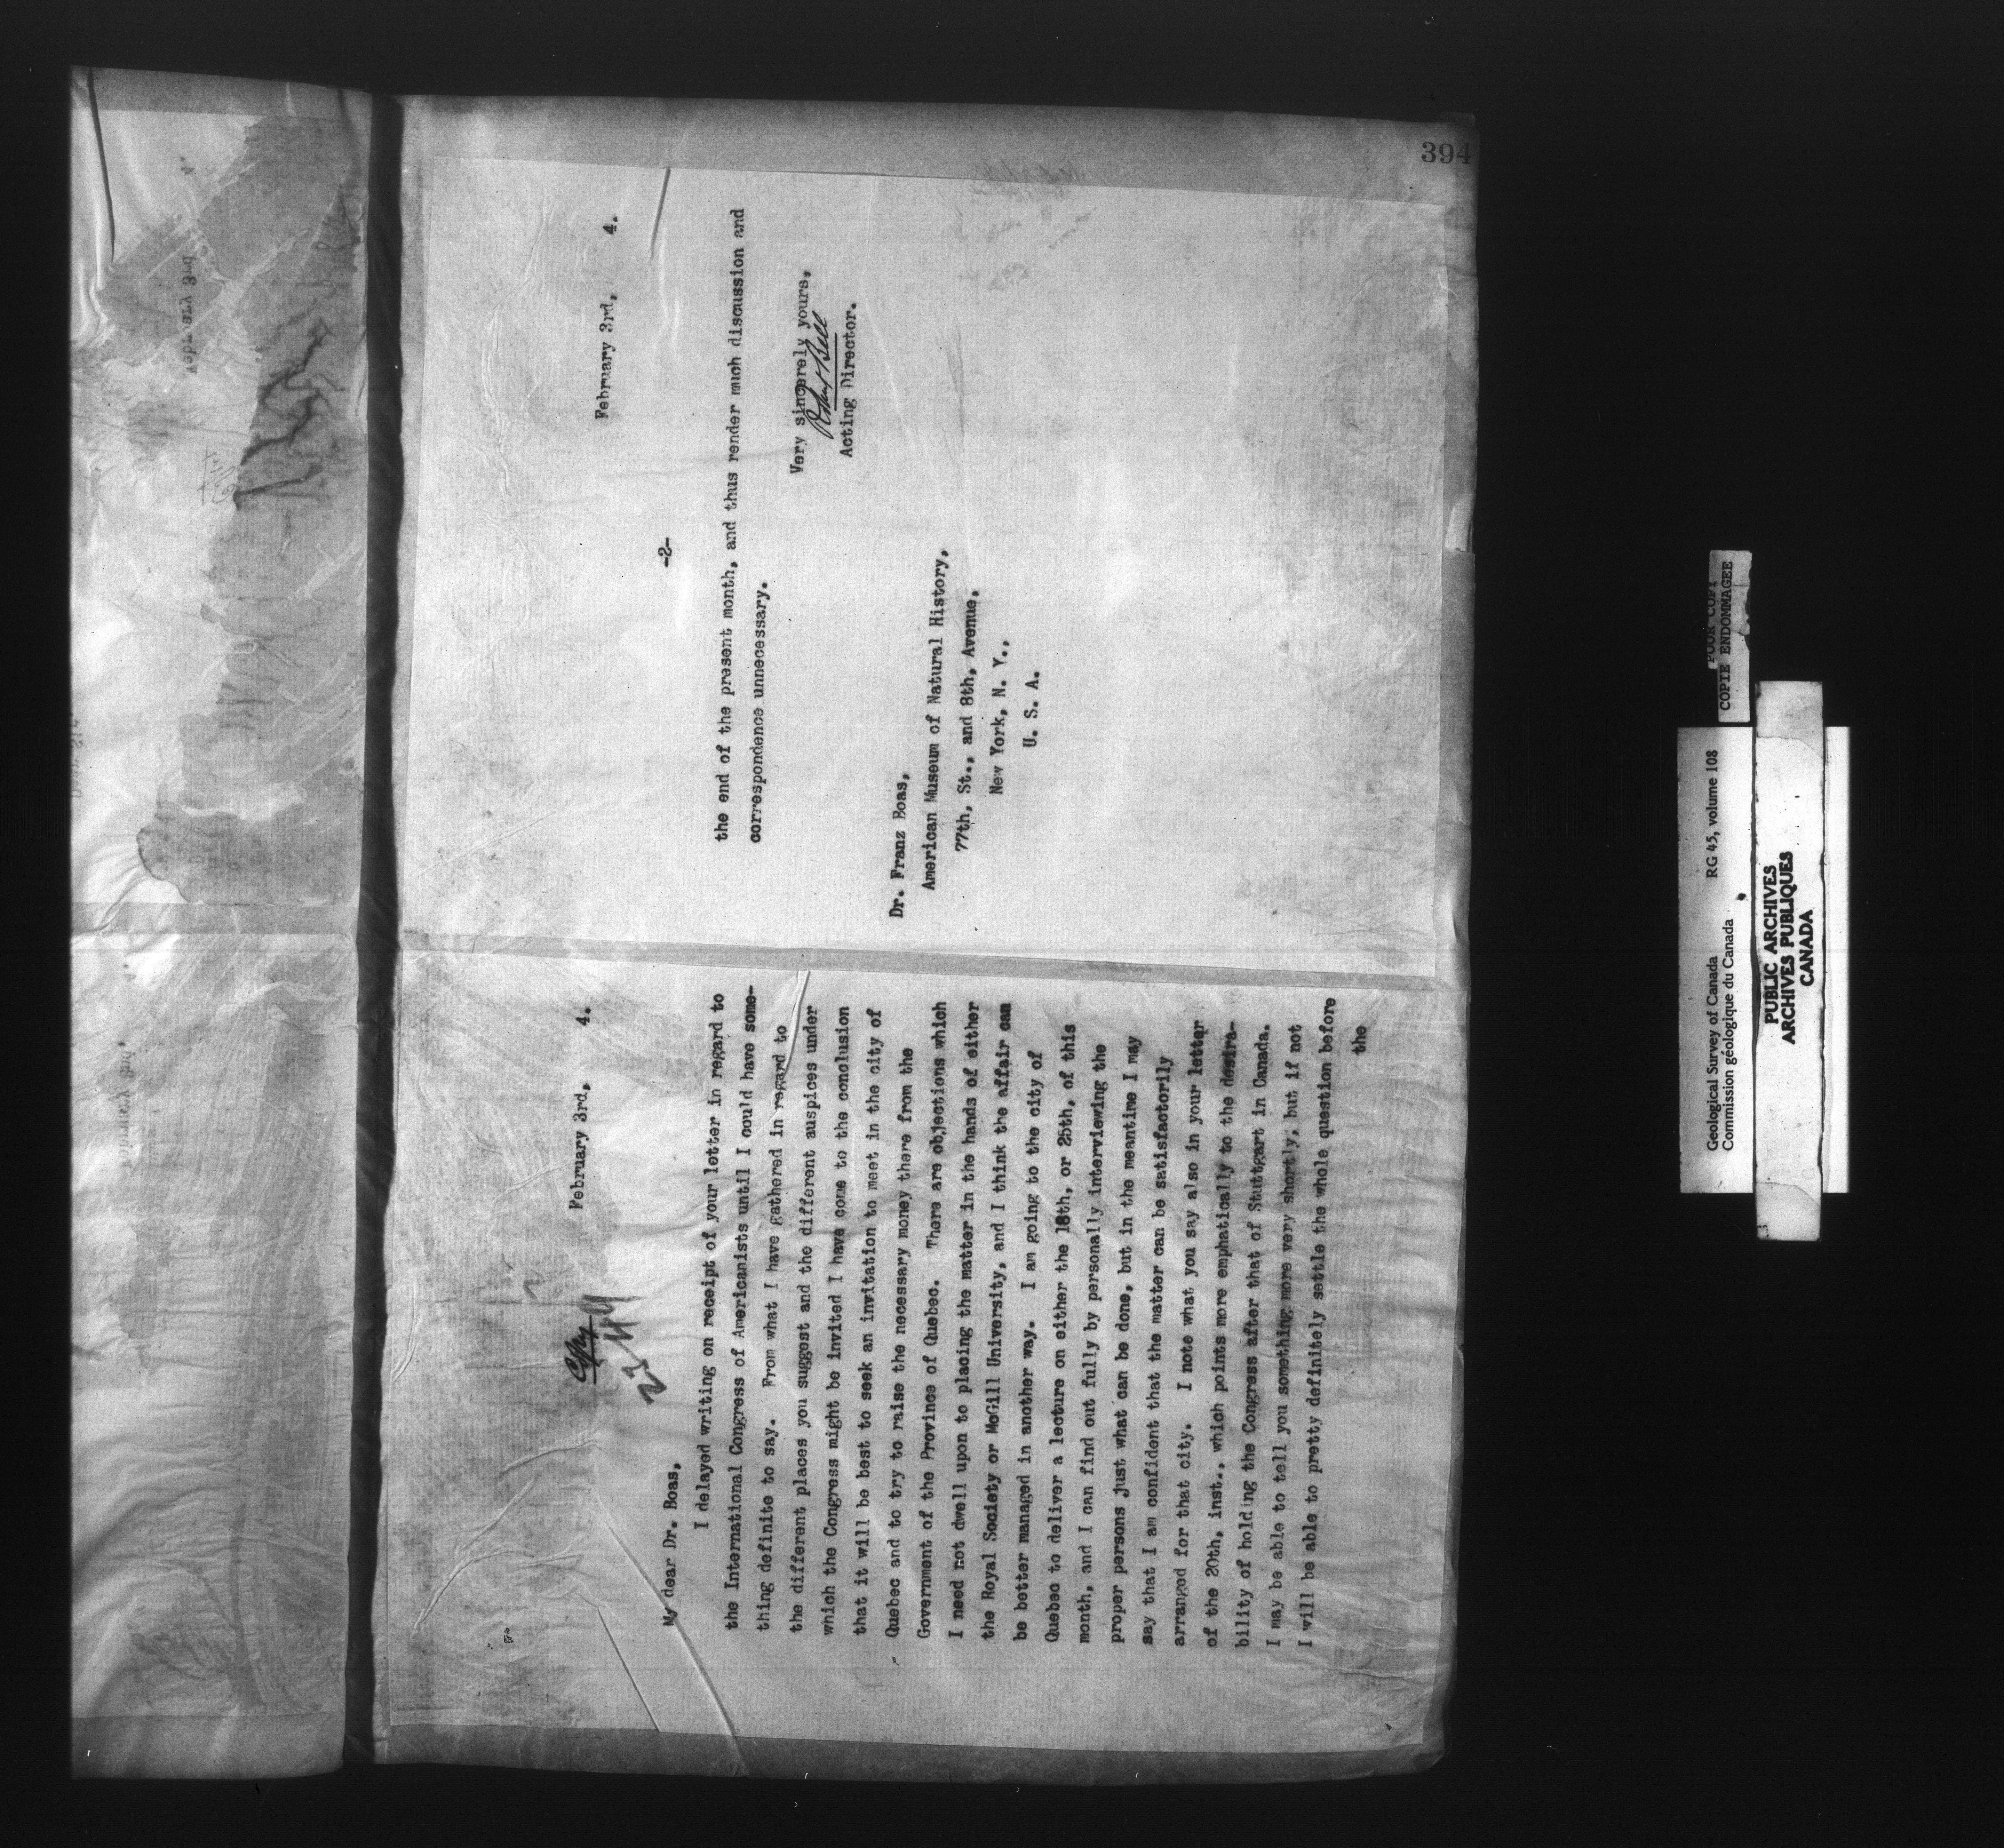 February 3rd, 4.
Copy
My dear Dr. Boas,
I delayed writing on receipt of your letter in regard to
the International Congress of Americanists until I could have some-
thing definite to say. From what I have gathered in regard to
the different places you suggest and the different auspices under
which the Congress might be invited I have come to the conclusion
that it will be best to seek an invitation to meet in the city of
Quebec and to try to raise the necessary money there from the
Government of the Province of Quebec. There are objections which
I need not dwell upon to placing the matter in the hands of either
the Royal Society or McGill University, and I think the affair can
be better managed in another way. I am going to the city of
Quebec to deliver a lecture on either the 18th, or 25th, of this
month, and I can find out fully by personally interviewing the
proper persons just what can be done, but in the meantime I may
say that I am confident that the matter can be satisfactorily
arranged for that city. I note what you say also in your letter
of the 20th, inst., which points more emphatically to the desira-
bility of holding the Congress after that of Stuttgart in Canada.
I may be able to tell you something more very shortly, but if not
I will be able to pretty definitely settle the whole question before
the
394
February 3rd, 4.
-2-
the end of the present month, and thus render much discussion and
correspondence unnecessary.
Very sincerely yours,
Robert Bell
Acting Director.
Dr. Franz Boas,
American Museum of Natural History,
77th, St., and 8th, Avenue,
New York, N. Y.,
U. S. A.
February 3rd
4.
Geological Survey of Canada RG 45, volume 108
Commission géologique du Canada
POOR COPY
COPIE ENDOMMAGEE
PUBLIC ARCHIVES
ARCHIVES PUBLIQUES
CANADA